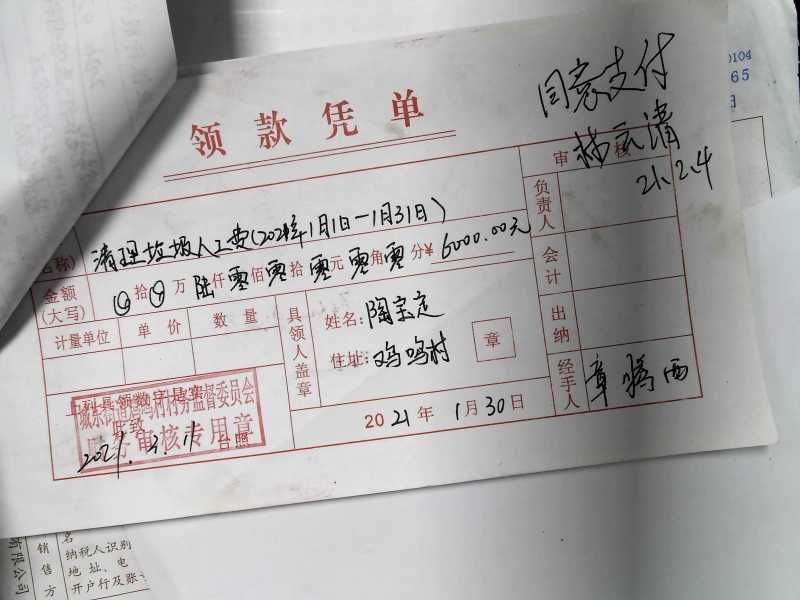 领款凭单
同意支付
21.2.4
审 核
名称)
清理垃圾人工费(2021年1月1日-1月31日)
金额
(大写)
拾 万 陆仟零佰零拾零元零角零分¥ 6000.00元
计量单位 单价 数量
具领人盖章
姓名: 陶宝定
住址: 鸡鸣村
章
2021年1月30日
负责人
会计
出纳
经手人
章腾西
上列具领数字是实
此致
台照
村务监督委员会
审核专用章
0104
65
日
有限公司
销售方
名
纳税人识别
地址、电
开户行及账